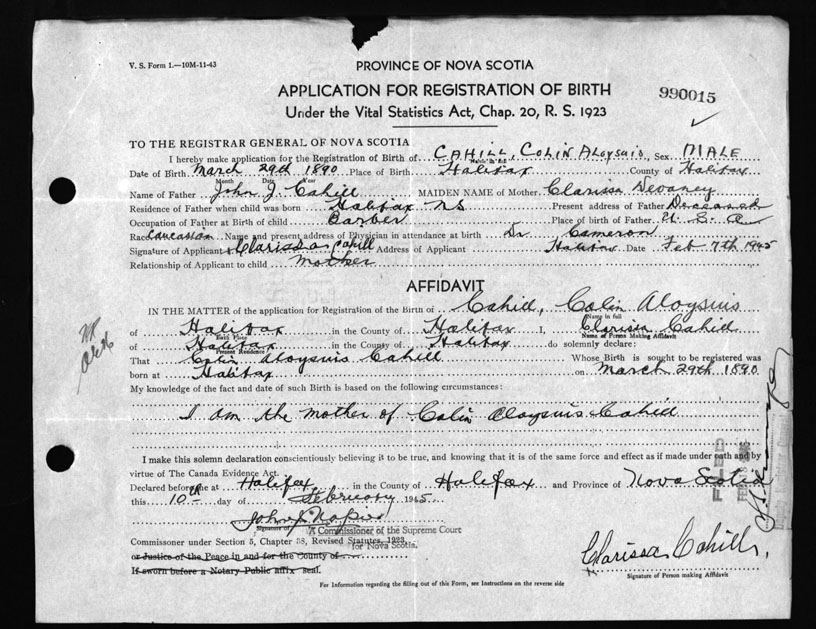 V. S. Form 1.—10M-11-43
PROVINCE OF NOVA SCOTIA
APPLICATION FOR REGISTRATION OF BIRTH
990015
Under the Vital Statistics Act, Chap. 20, R. S. 1923
TO THE REGISTRAR GENERAL OF NOVA SCOTIA
I hereby make application for the Registration of Birth of CAHILL, COLIN Aloysuis, Sex MALE
Date of Birth March 29th 1890 Place of Birth Halifax County of Halifax
Month Date Year
Name of Father John J. Cahill MAIDEN NAME of Mother Clarissa Devaney
Residence of Father when child was born Halifax NS Present address of Father Deceased
Occupation of Father at Birth of child Barber Place of birth of Father U. S. A
Race Caucassian Name and present address of Physician in attendance at birth Dr. Cameron
Signature of Applicant Clarissa Cahill Address of Applicant Halifax Date Feb 7th 1945
Relationship of Applicant to child Mother
AFFIDAVIT
IN THE MATTER of the application for Registration of the Birth of Cahill, Colin Aloysuis
Name in full
of Halifax in the County of Halifax I, Clarissa Cahill
Birth Place Name of Person Making Affidavit
of Halifax in the County of Halifax do solemnly declare:
Present Residence
That Colin Aloysuis Cahill Whose Birth is sought to be registered was
born at Halifax on March 29th 1890
My knowledge of the fact and date of such Birth is based on the following circumstances:
I am the mother of Colin Aloysuis Cahill
I make this solemn declaration conscientiously believing it to be true, and knowing that it is of the same force and effect as if made under oath and by
virtue of The Canada Evidence Act.
Declared before me at Halifax in the County of Halifax and Province of Nova Scotia
this 10th day of February 1945
John Napier
Signature of A Commissioner of the Supreme Court
for Nova Scotia.
Commissioner under Section 5, Chapter 38, Revised Statutes, 1923
or Justice of the Peace in and for the County of
If sworn before a Notary Public affix seal.
Clarissa Cahill
Signature of Person making Affidavit
For Information regarding the filling out of this Form, see Instructions on the reverse side
FILED